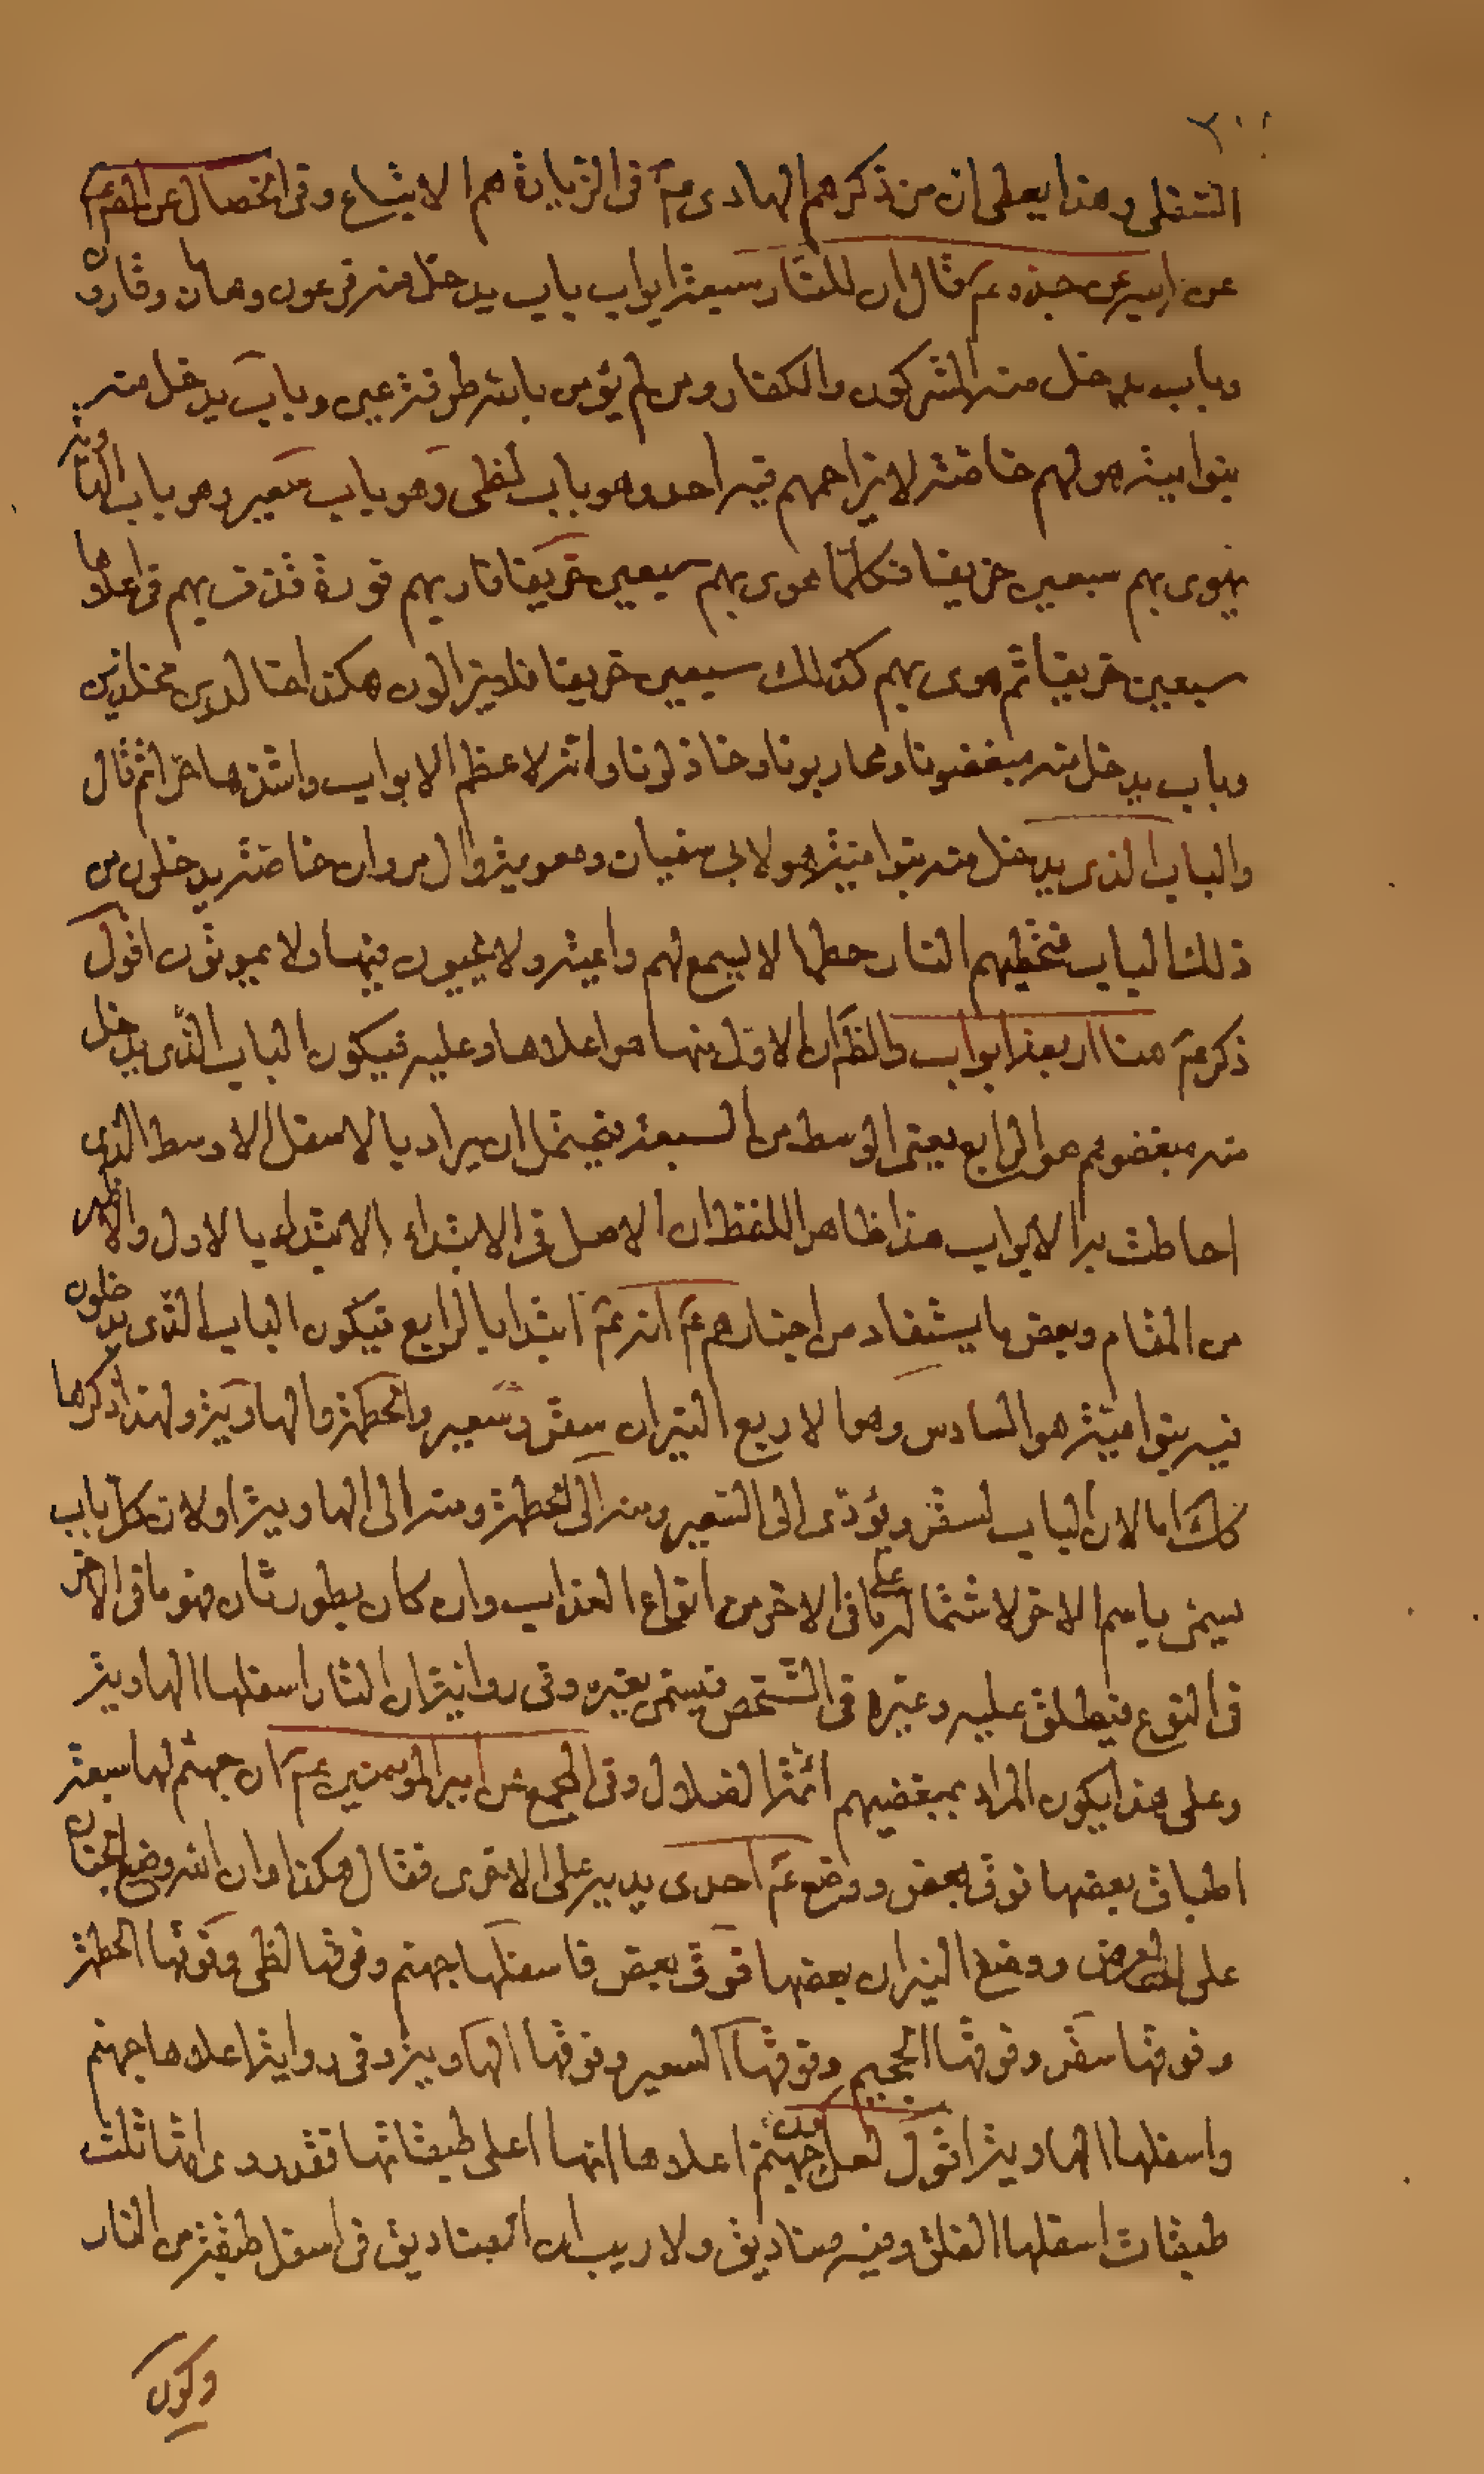 السفلى وهذا يعطى ان من ذكرهم الهادى عم فى الزيارة هم الاتباع وفى الخصال عن الصم عم
عن ابيه عن جده عم قال ان للنار سبعة ابواب باب يدخل منه فرعون وهامان وقارون
وباب يدخل منه المشركون والكفار ومن لم يؤمن بالله طرفة عين وباب يدخل منه
بنوامية هو لهم خاصة لا يزاحمهم فيه احد وهو باب لظى وهو باب سعير وهو باب الهاوية
يهوى بهم سبعين خريفا فكلما هوى بهم سبعين خريفا فار بهم فورة قذف بهم فى اعلاها
سبعين خريفا ثم هوى بهم كذلك سبعين خريفا فلا يزالون هكذا خالدين مخلدين
وباب يدخل منه مبغضونا ومحاربونا وخاذلونا وانه لاعظم الابواب واشدها حرا ثم قال
والباب الذى يدخل منه بنوامية هو لابى سفيان ومعوية وال مروان خاصة يدخلون من
ذلك الباب فتحطمهم النار حطما لا يسمع لهم واعية ولا يحيون فيها ولا يموتون اقول
ذكر عم هنا اربعة ابواب والظ ان الاول منها هو اعلاها وعليه فيكون الباب الذى يدخل
منه مبغضوهم هو الرابع يعنى الوسط من السبعة فيحتمل ان يراد بالاسفل الاوسط الذى
احاطت به الابواب هذا ظاهر اللفظ ان الاصل فى الابتداء الابتداء بالاول و
من المقام وبعض ما يستفاد من اخبارهم عم انه عم ابتدا بالرابع فيكون الباب الذى يدخلون
فيه بنوامية هو السادس وهو لاربع النيران سقر وسعير والحطمة والهاوية ولهذا ذكرها
كك اما لان الباب لسقر ويؤدى الى السعير ومنه الى الحطمة ومنه الى الهاوية او لان كل باب
يسمى باسم الاخر لاشتماله على ما فى الاخر من انواع العذاب وان كان بطور ثان فهو ما فى الاخر
فى النوع فيطلق عليه وغيره فى الشخص فيسمى بغيره وفى رواية ان النار اسفلها الهاوية
وعلى هذا يكون المراد بمبغضيهم ائمة الضلال وفى المجمع عن امير المؤمنين عم ان جهنم لها سبعة
اطباق بعضها فوق بعض ووضع عم احدى يديه على الاخرى فقال هكذا وان الله وضع الجنان
على العرض ووضع النيران بعضها فوق بعض فاسفلها جهنم وفوقها لظى وفوقها الحطمة
وفوقها سقر وفوقها الجحيم وفوقها السعير وفوقها الهاوية وفى رواية اعلاها جهنم
واسفلها الهاوية اقول لعل كون جهنم اعلاها انها اعلى طبقاتها فقد روى انها ثلث
طبقات اسفلها الفلق وفيه صناديق ولا ريب ان الصناديق فى اسفل طبقة من النار
وكون